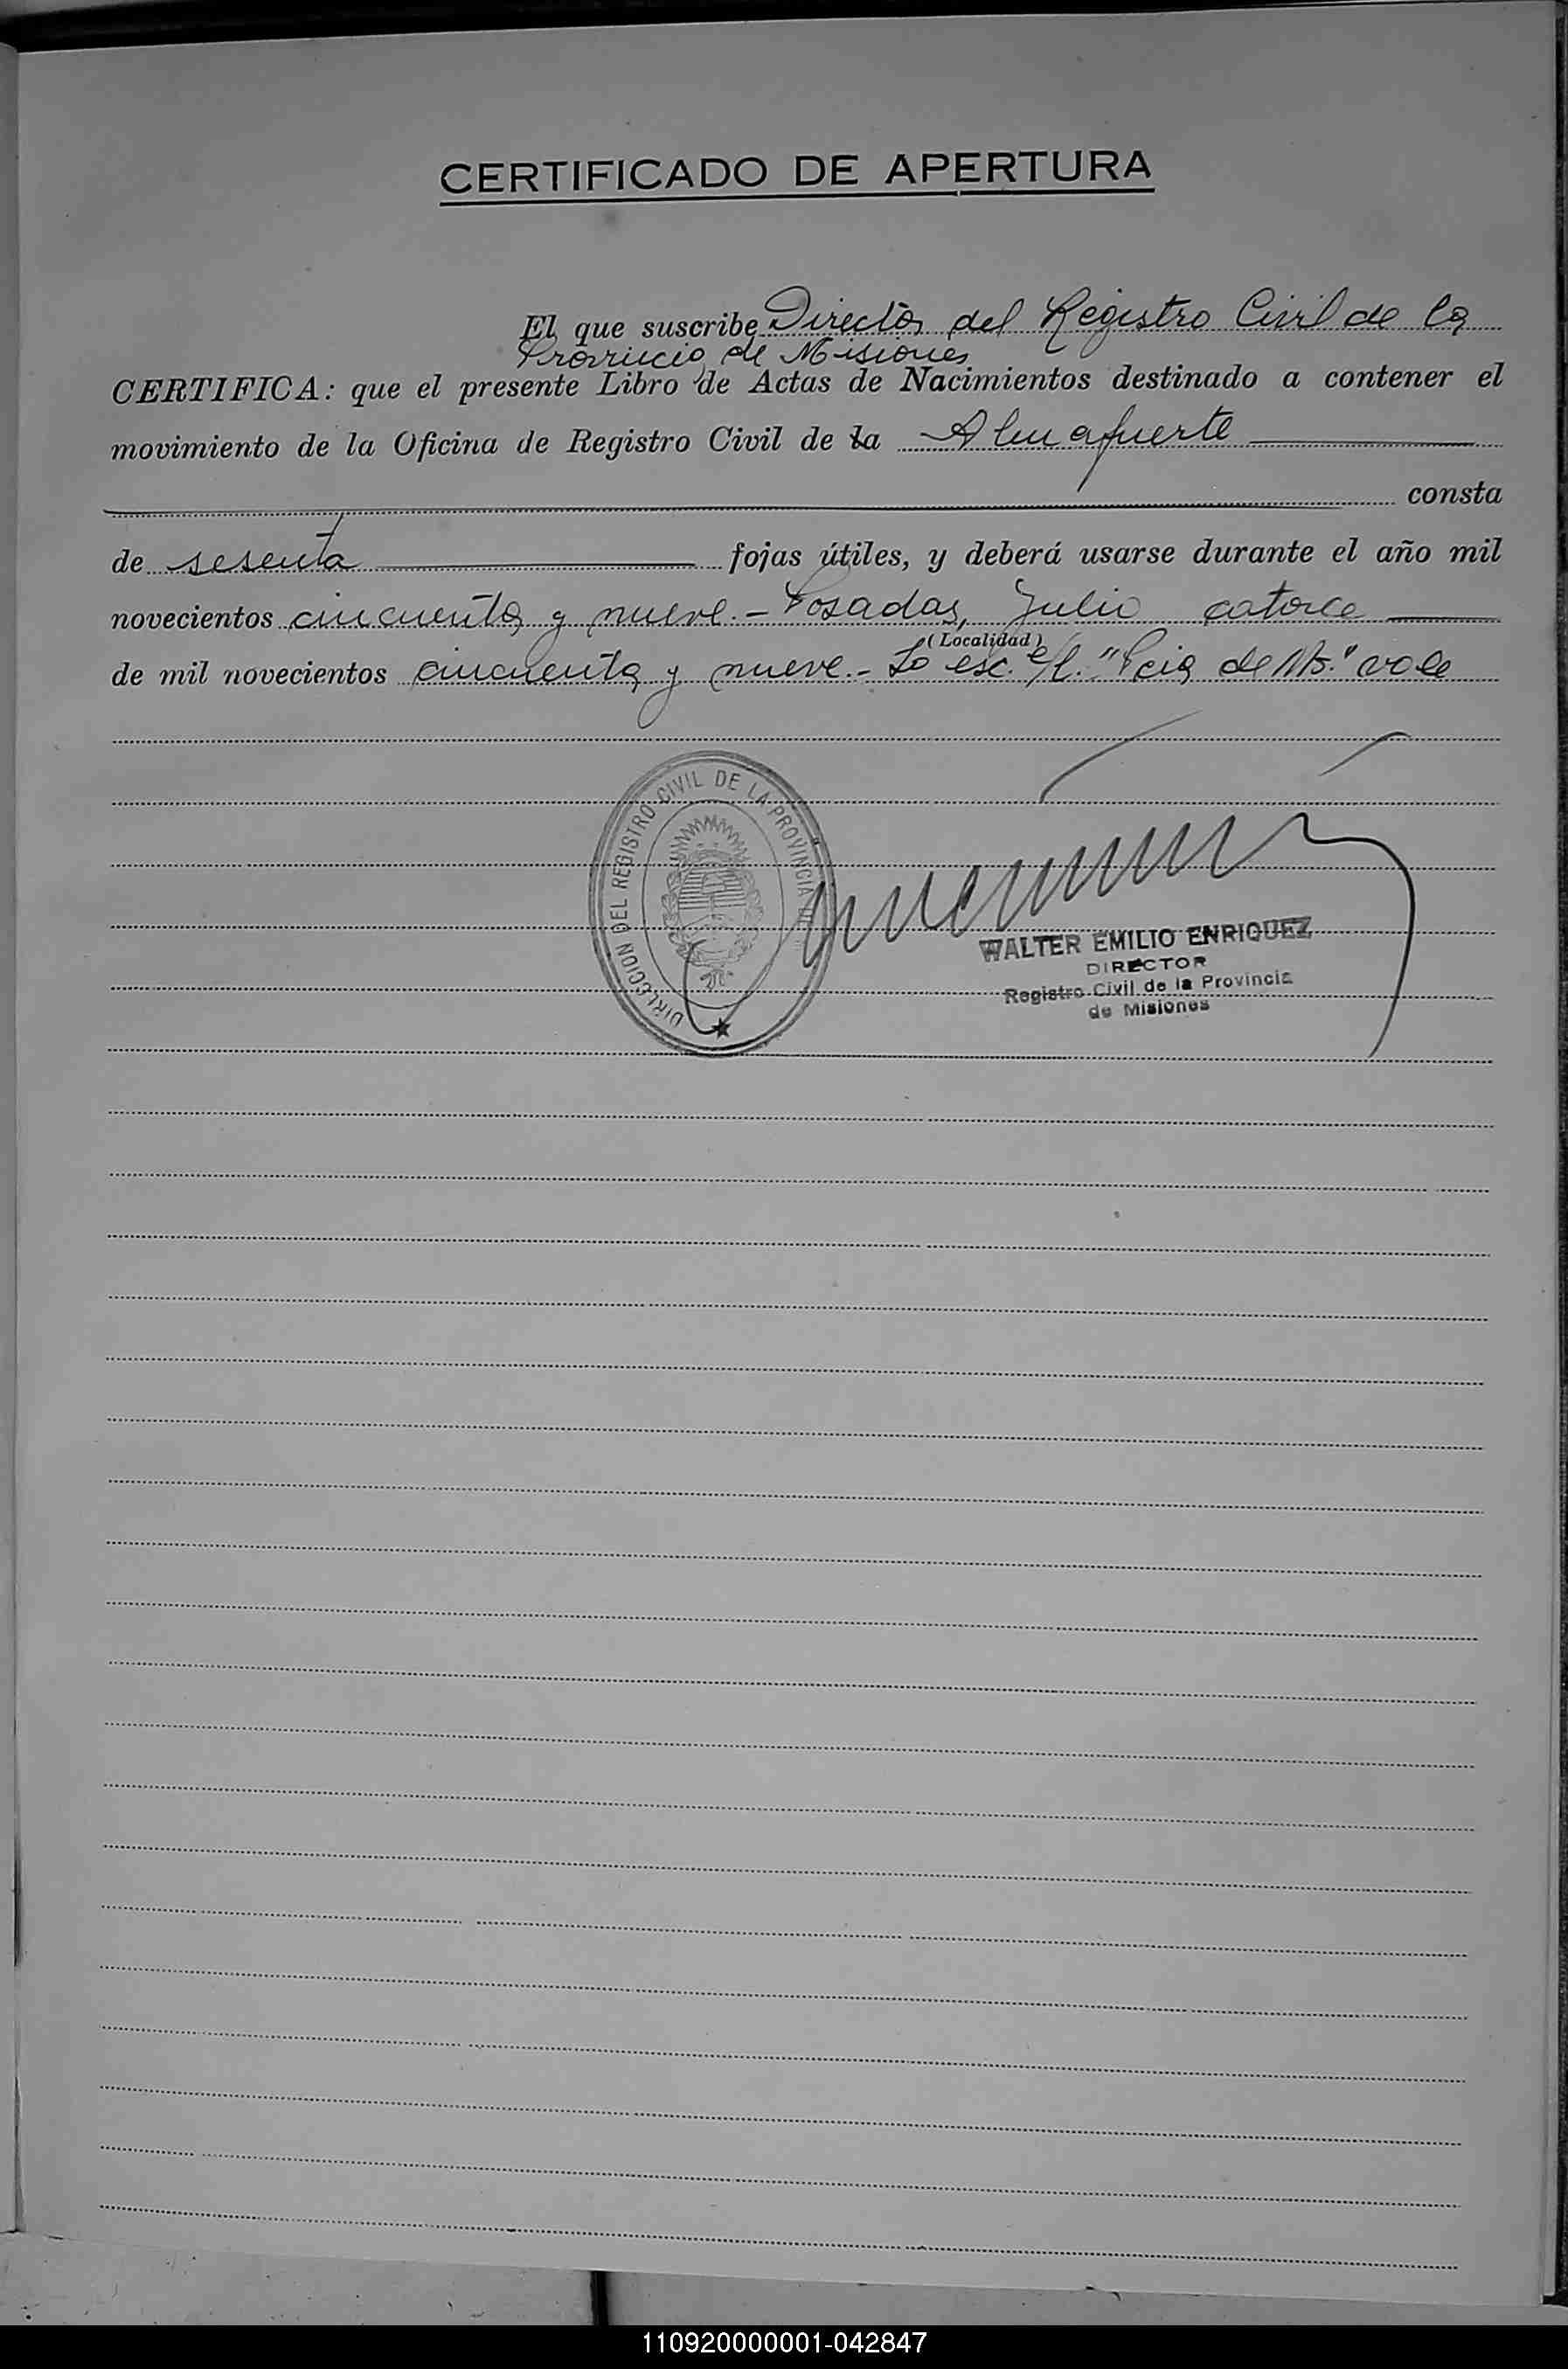 CERTIFICADO DE APERTURA
El que suscribe Director del Registro Civil de la
Provincia de Misiones
CERTIFICA: que el presente Libro de Actas de Nacimientos destinado a contener el
movimiento de la Oficina de Registro Civil de la Almafuerte
consta
de sesenta fojas útiles, y deberá usarse durante el año mil
novecientos cincuenta y nueve.- Posadas, Julio catorce
(Localidad)
de mil novecientos cincuenta y nueve.- Lo esc. e/l. "Pcia de Ms." vale
DIRECCION DEL REGISTRO CIVIL DE LA PROVINCIA DE
WALTER EMILIO ENRIQUEZ
DIRECTOR
Registro Civil de la Provincia
de Misiones
110920000001-042847